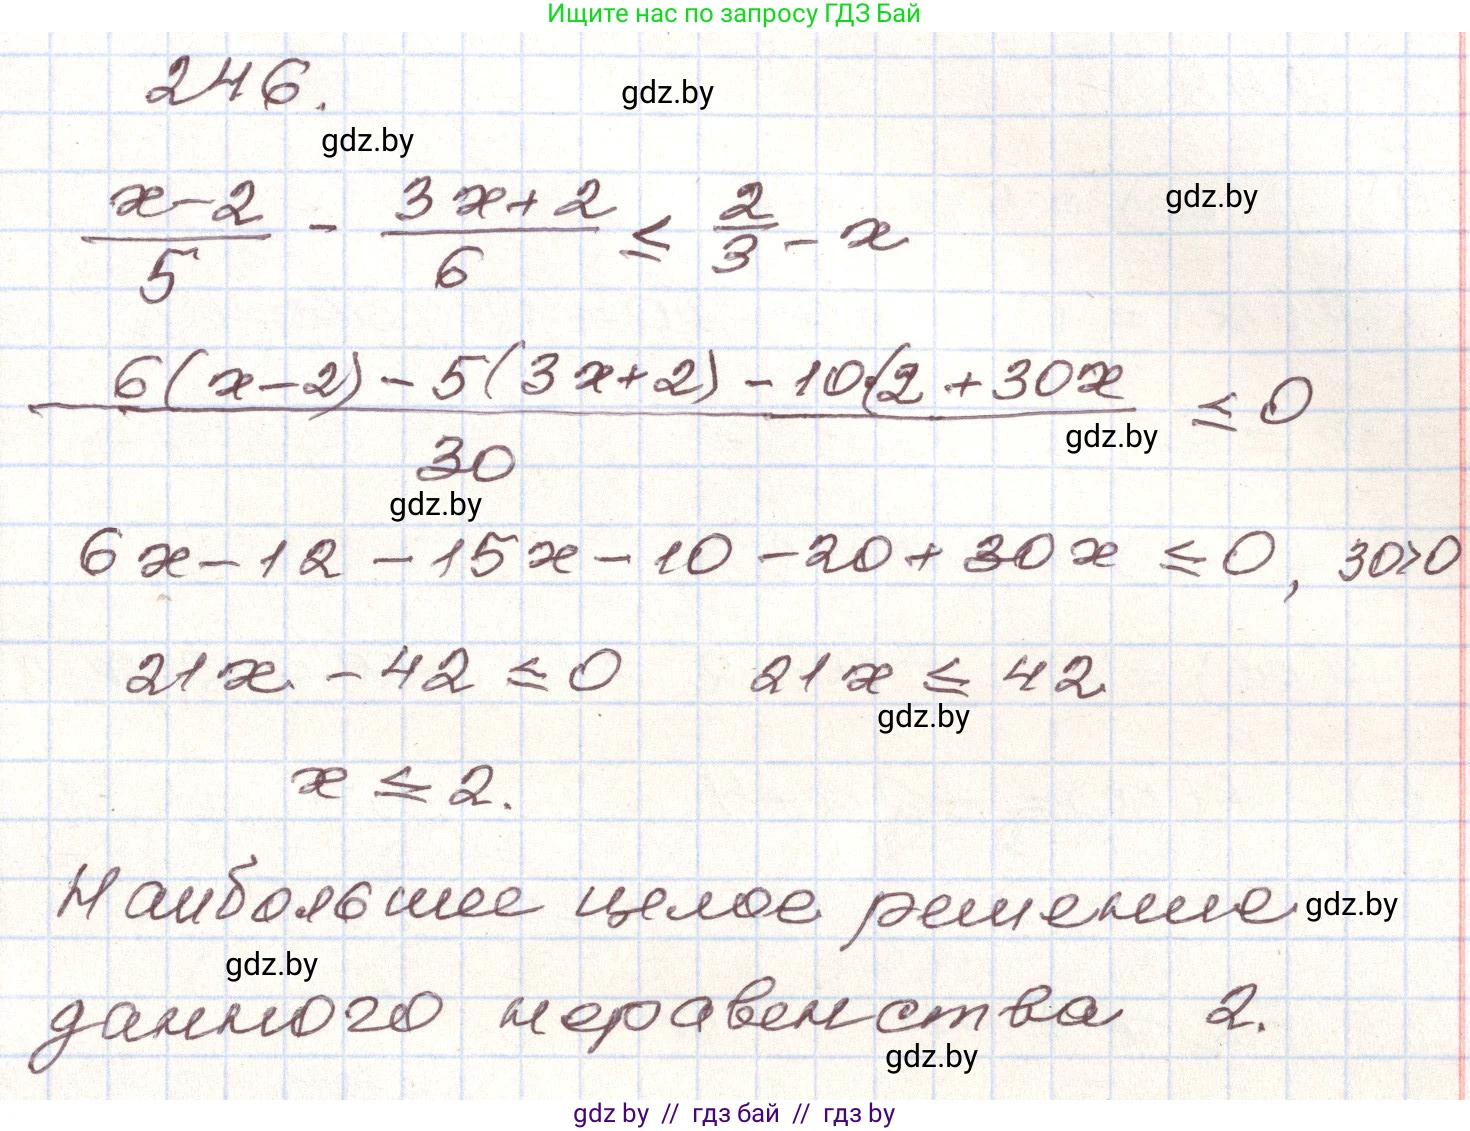 Ищите нас по запросу ГДЗ Бай
246.
gdz.by
gdz.by
gdz.by
x-2/5 - 3x+2/6 ≤ 2/3 - x
6(x-2) - 5(3x+2) - 10·(2 + 30x / 30 ≤ 0
gdz.by
gdz.by
6x - 12 - 15x - 10 - 20 + 30x ≤ 0, 30>0
21x - 42 ≤ 0 21x ≤ 42
gdz.by
x ≤ 2.
Наибольшее целое решение
gdz.by
gdz.by
данного неравенства 2.
gdz.by
gdz by // гдз бай // гдз by